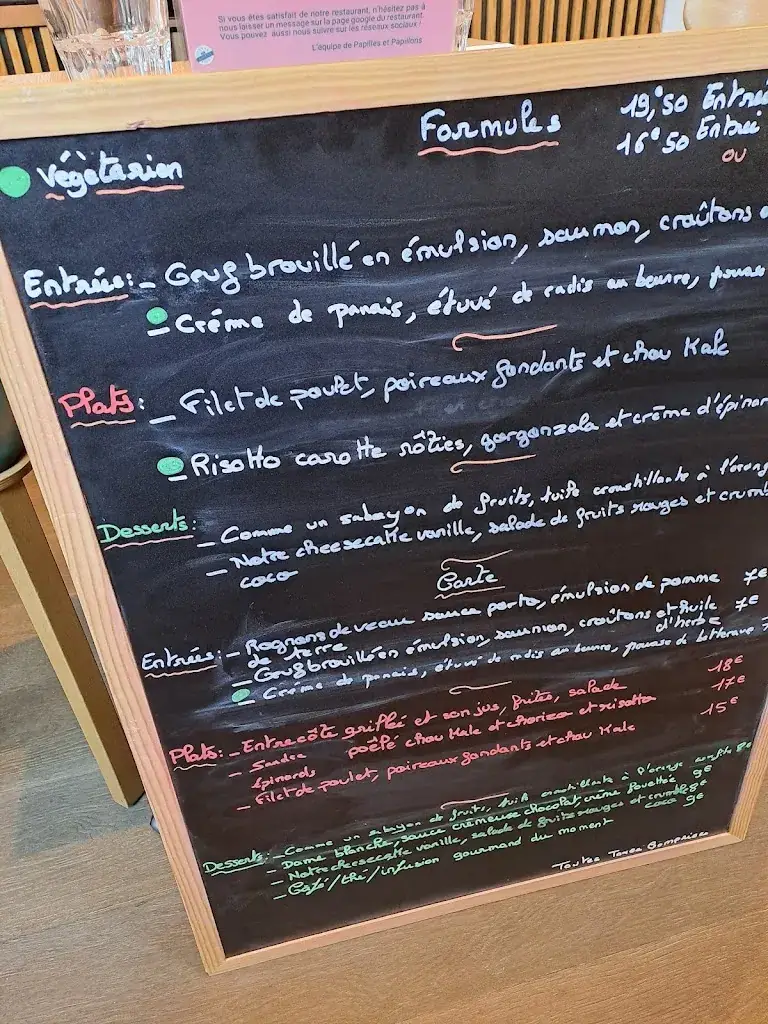 Si vous êtes satisfait de notre restaurant, n'hésitez pas à
nous laisser un message sur la page google du restaurant.
Vous pouvez aussi nous suivre sur les réseaux sociaux !
L'équipe de Papilles et Papillons
Formules 19,50 Entrée
16,50 Entrée
ou
Végétarien
Entrées: - Oeuf brouillé en émulsion, saumon, croûtons
- Crème de panais, étuvé de radis au beurre, pousse
Plats: - Filet de poulet, poireaux fondants et chou Kale
- Risotto carotte rôties, gorgonzola et crème d'épinar
Desserts: - Comme un sabayon de fruits, tuile croustillante à l'orang
- Notre cheesecake vanille, salade de fruits rouges et crumb
coco
Carte
Entrées: - Rognons de veau sauce porto, émulsion de pomme 7€
de terre
- Oeuf brouillé en émulsion, saumon, croûtons et huile 7€
d'herbe
- Crème de panais, étuvé de radis au beurre, pousse de betterave 7
Plats: - Entrecôte grillé et son jus, frites, salade 18€
- Sandre poêlé chou Kale et chorizo et risotto 17€
épinards
- Filet de poulet, poireaux fondants et chou Kale 15€
Desserts: - Comme un sabayon de fruits, tuile croustillante à l'orange 8€
- Dame blanche, sauce crémeuse chocolat, crème fouettée 9€
- Notre cheesecake vanille, salade de fruits rouges et crumble 8€
coco
- Café/thé/infusion gourmand du moment 9€
Toutes Taxes Comprises